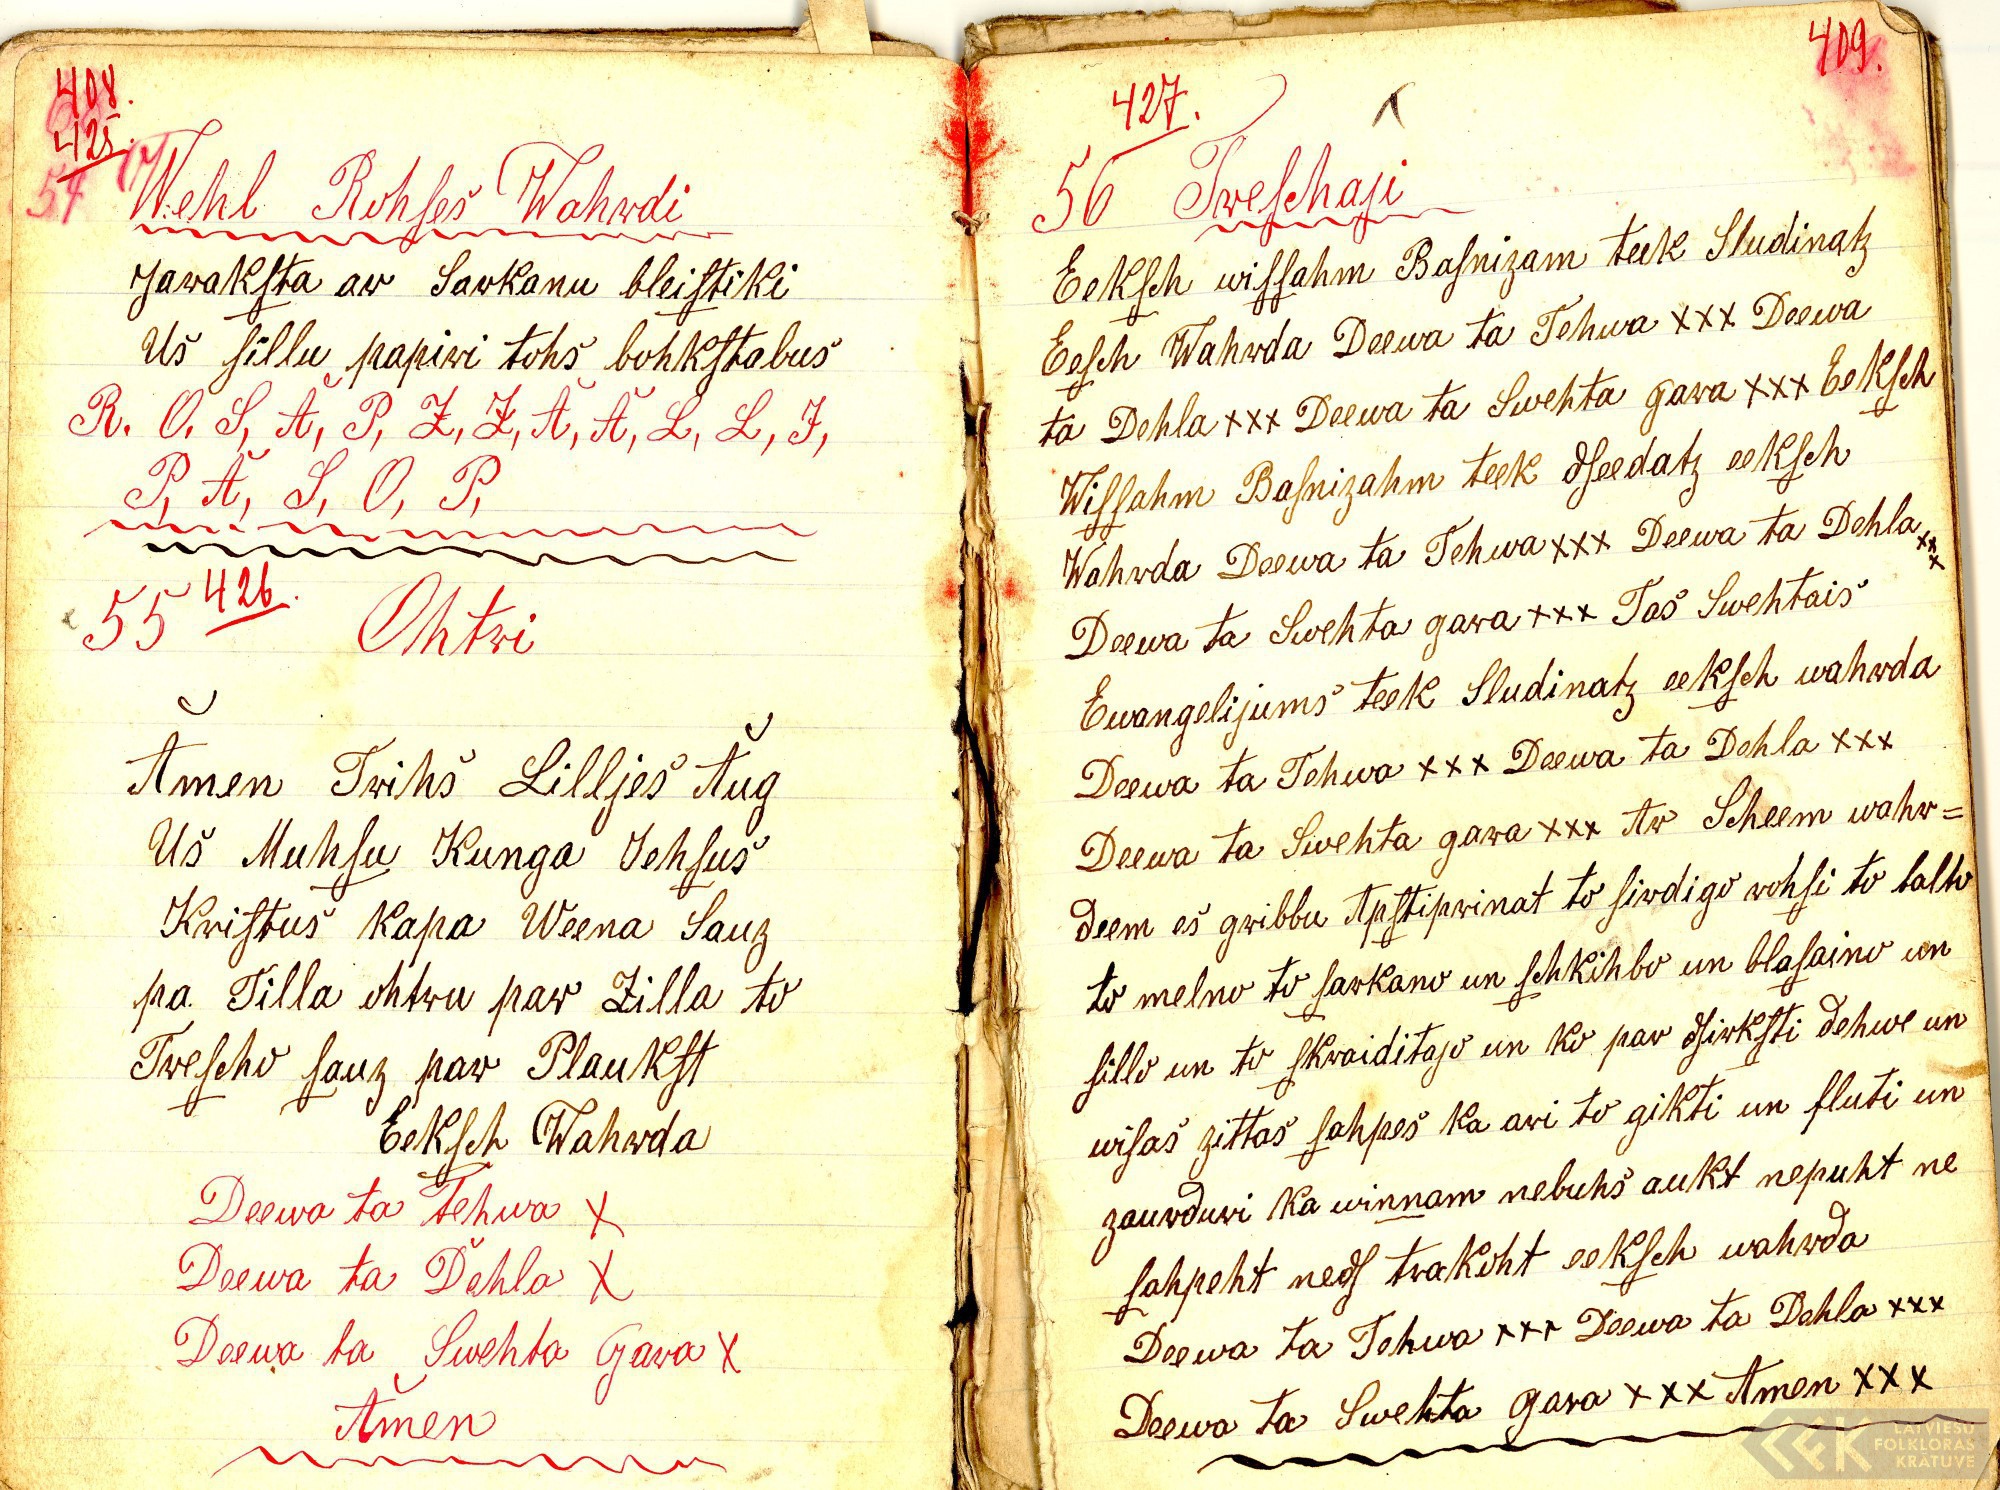 408.
425.
54
Wehl Rohſes Wahrdi
Jarakſta ar Sarkanu bleiſtiki
Us ſillu papiri tohs bohkſtabus
R. O, S, A, P, Z, Z, A, A, L, L, I,
P, A, S, O, P,
55 426.
Ohtri
Amen Trihs Lilljes Aug
Us Muhſu Kunga Jehſus
Kriſtus kapa Weena Sauz
pa Tilla ohtru par Zilla to
Treſcho ſauz par Plaukſt
Eekſch Wahrda
Deewa ta Tehwa X
Deewa ta Dehla X
Deewa ta Swehta Gara X
Amen
409.
427.
56 Treſchaji
Eekſch wiſſahm Baſnizam teek Sludinatz
Eeſch Wahrda Deewa ta Tehwa xxx Deewa
ta Dehla xxx Deewa ta Swehta gara xxx Eekſch
Wiſſahm Baſnizahm teek dſeedatz eekſch
Wahrda Deewa ta Tehwa xxx Deewa ta Dehla xxx
Deewa ta Swehta gara xxx Tas Swehtais
Ewangelijums teek Sludinatz eekſch wahrda
Deewa ta Tehwa xxx Deewa ta Dehla xxx
Deewa ta Swehta gara xxx Ar Scheem wahr=
deem es gribbu Apſtiprinat to ſirdigo rohſi to balto
to melno to ſarkano un ſchkihbo un blaſaino un
ſillo un to ſkraiditajo un ko par dſirkſti dehwe un
wiſas zittas ſahpes ka ari to gikti un fluti un
zaurduri ka winnam nebuhs aukt nepuht ne
ſahpeht nedſ trakoht eekſch wahrda
Deewa ta Tehwa xxx Deewa ta Dehla xxx
Deewa ta Swehta gara xxx Amen xxx
LATVIEŠU
FOLKLORAS
KRĀTUVE